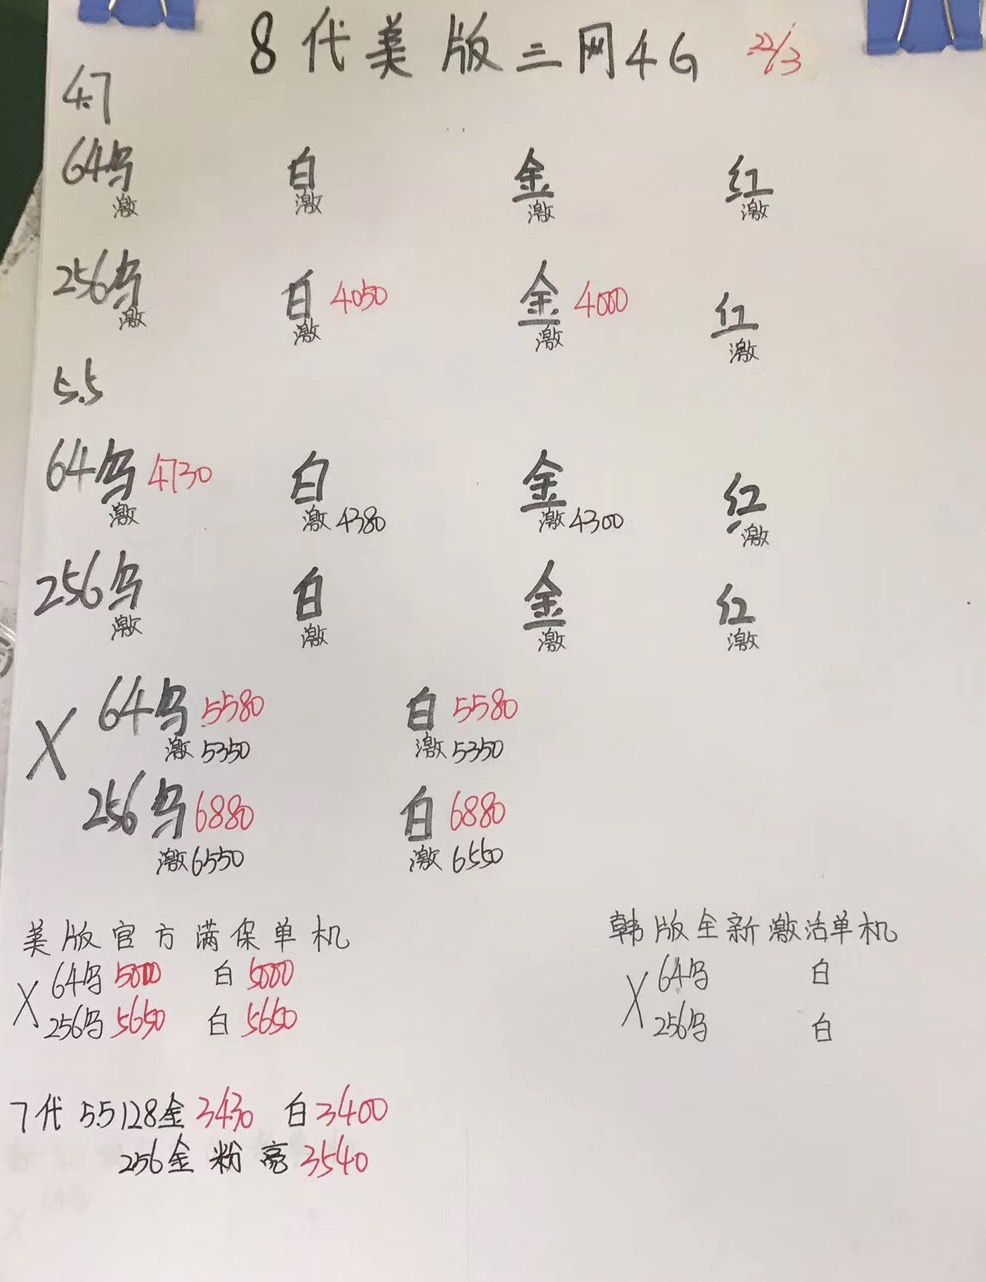 8代美版三网4G 22/3
4.7
64乌 白 金 红
激 激 激 激
256乌 白 4050 金 4000 红
激 激 激 激
5.5
64乌 4730 白 金 红
激 激 4380 激 4300 激
256乌 白 金 红
激 激 激 激
X 64乌 5580 白 5580
激 5350 激 5350
256乌 6880 白 6880
激 6550 激 6550
美版官方满保单机 韩版全新激活单机
X 64乌 5000 白 5000 X 64乌 白
256乌 5650 白 5650 256乌 白
7代 5.5 128金 3430 白 3400
256金 粉 亮 3540